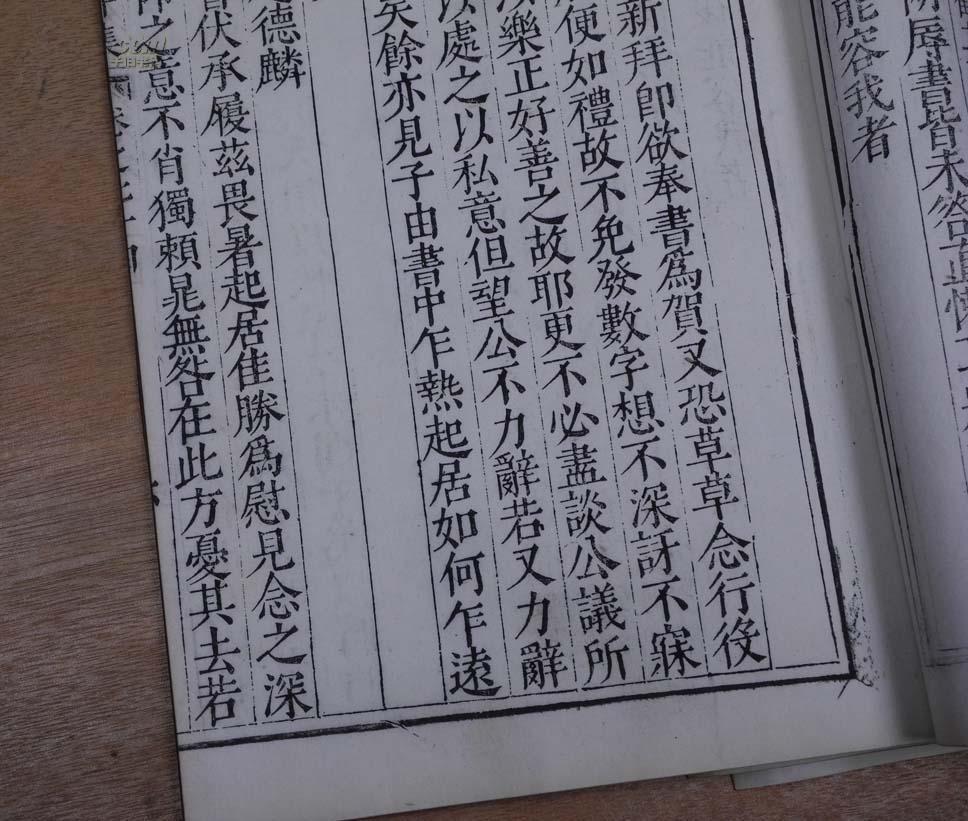 辱書皆未答直
能容我者
新拜即欲奉書為賀又恐草草念行役
便如禮故不免發數字想不深訝不寐
樂正好善之故耶更不必盡談公議所
以處之以私意但望公不力辭若又力辭
矣餘亦見子由書中乍熱起居如何乍遠
德麟
伏承履茲畏暑起居佳勝為慰見念之深
之意不肖獨賴晁無咎在此方憂其去若
集